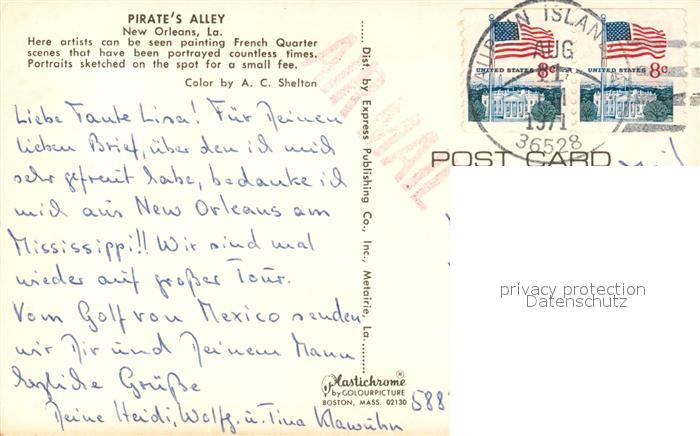 PIRATE'S ALLEY
New Orleans, La.
Here artists can be seen painting French Quarter
scenes that have been portrayed countless times.
Portraits sketched on the spot for a small fee.
Color by A. C. Shelton
Liebe Tante Lisa! Für Deinen
lieben Brief, über den ich mich
sehr gefreut habe, bedanke ich
mich aus New Orleans am
Mississippi!! Wir sind mal
wieder auf großer Tour.
Vom Golf von Mexico senden
wir Dir und Deinem Mann
herzliche Grüße
Deine Heidi, Wolfg. u. Tina Klawühn
Dist. by Express Publishing Co., Inc., Metairie, La.
Plastichrome®
by COLOURPICTURE
BOSTON, MASS. 02130
AIR MAIL
ISLAND
AUG
21
1971
36528
UNITED STATES 8c
UNITED STATES 8c
POST CARD
privacy protection
Datenschutz